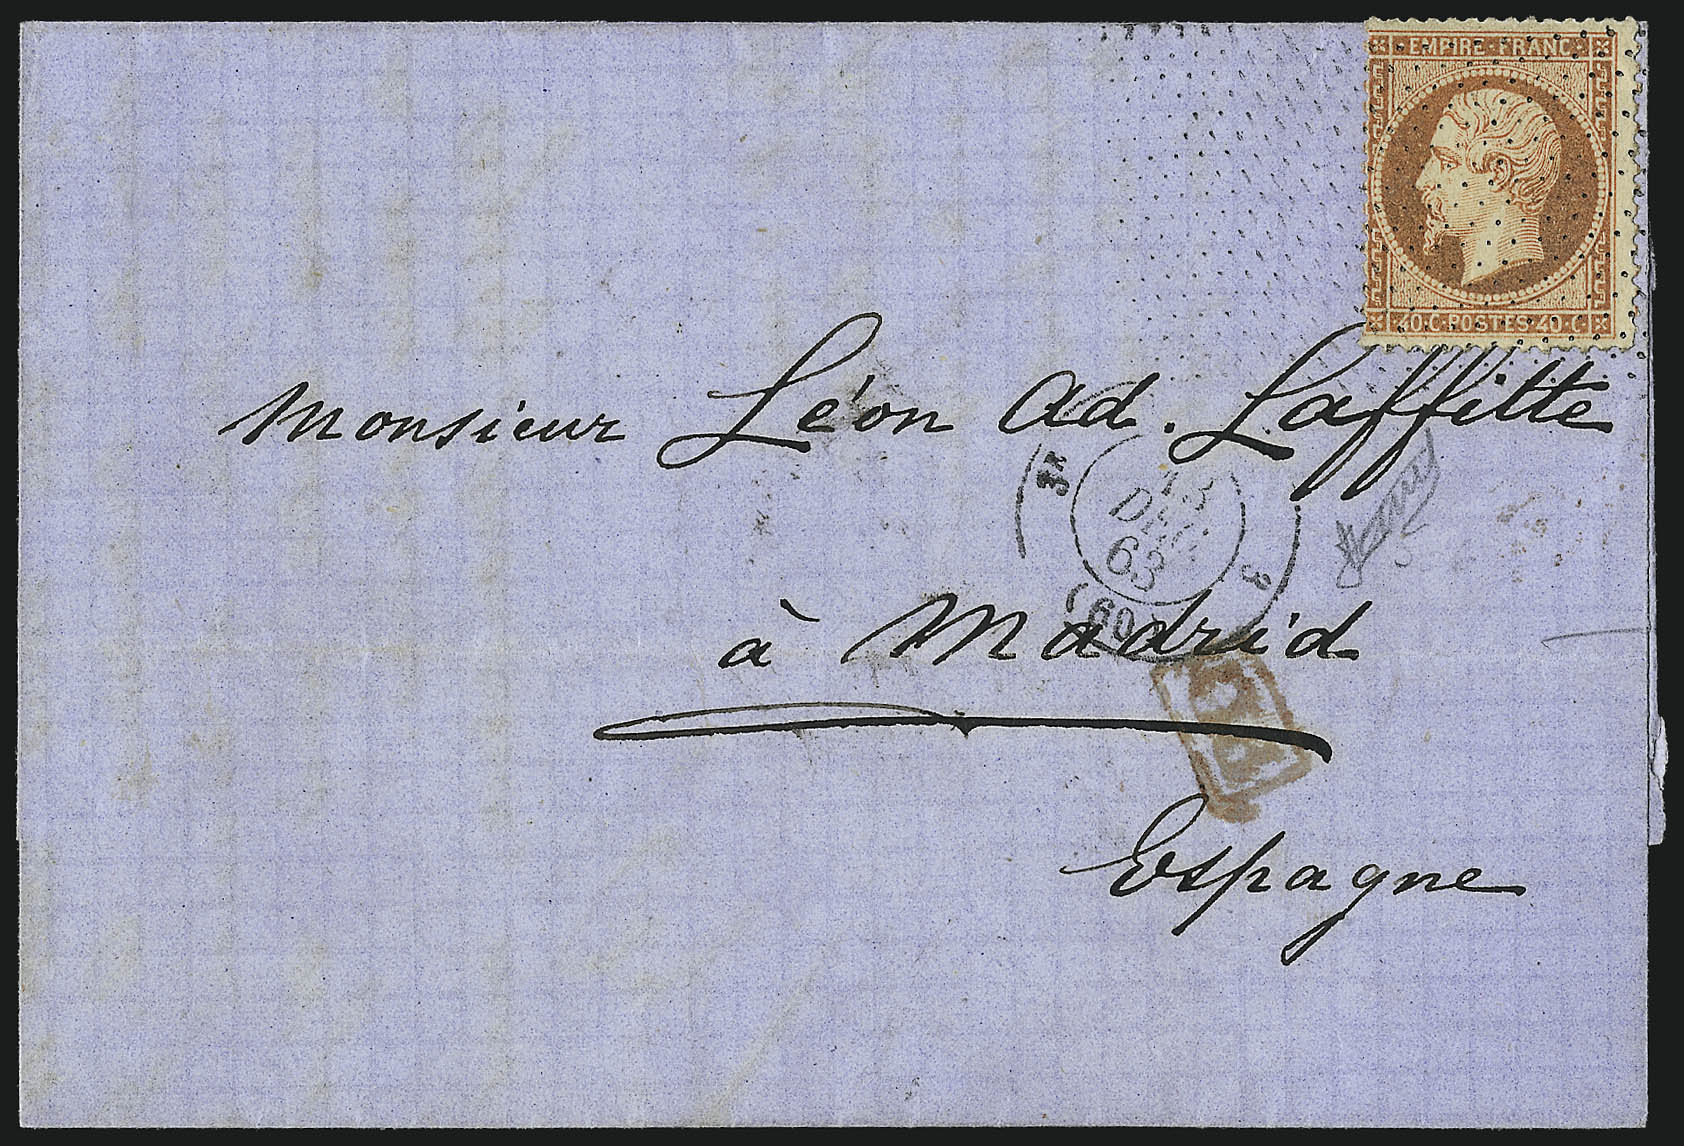 EMPIRE·FRANC·
40·C·POSTES·40·C·
Monsieur Léon Ad. Laffitte
DEC
63
(60)
à Madrid
Espagne